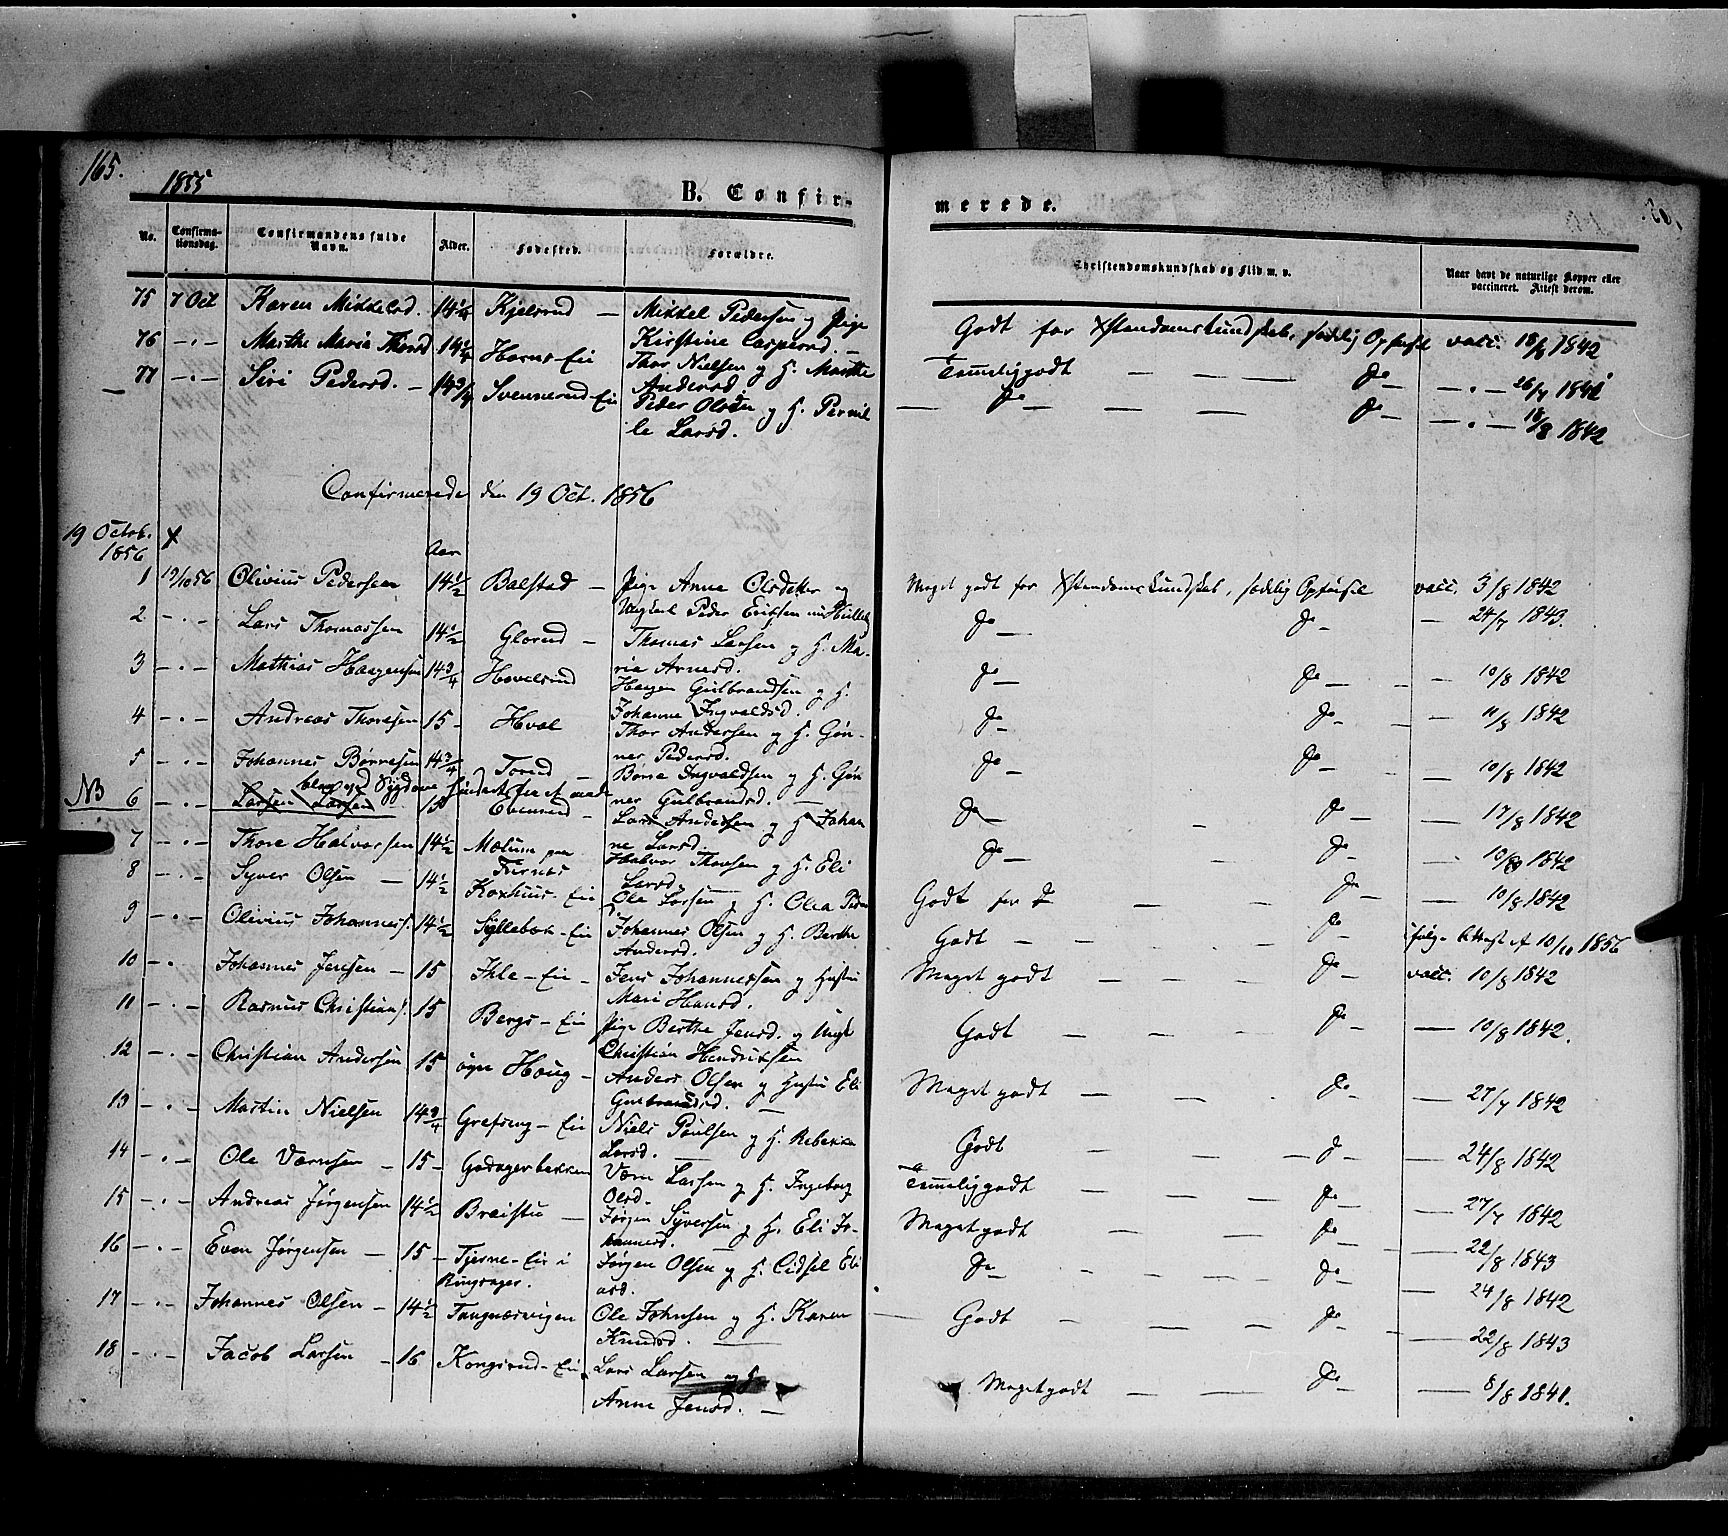 165.
1855
B. Confir-
merede.
No. Confirma-tionsdag. Confirmandens fulde Navn. Alder. Fødested. Forældre. Christendomskundskab og Flid m. v. Naar havt de naturlige Kopper eller vaccineret. Attest derom.
75 7 Oct Karen Mikkelsd. 14 1/4 Kjelsrud — Mikkel Pedersen og Pige
Kirstine Caspersd. — Godt for Xstendomskundskab, sædelig Opførsel vacc. 18/8 1842
76 — " — Marthe Marie Thorsd 14 1/4 Horns-Eie Thor Nielsen og H. Marthe
Andersd. Temmelig godt — — — do — — " — 26/7 1841
77 — " — Siri Pedersd. — 14 3/4 Svennerud-Eie Peder Olsen og H. Pernil-
le Larsd. — do — — — do — — " — 18/8 1842
Confirmerede den 19 Oct. 1856
19 Octob. X
1856 Aar
1 19/10 56 Olivius Pedersen 14 1/2 Balstad — Pige Anne Olsdatter og
Ungkarl Peder Eriksen Meget godt for Xstendomskundskab, sædelig Opførsel vacc. 3/8 1842
2 — " — Lars Thomassen 14 1/2 Glorud — Thomas Larsen og H. Ma-
ria Arnesd. do — do — — 24/7 1843
3 — " — Mathias Haagensen 14 3/4 Hovelsrud Haagen Gulbrandsen og H.
Johanne Ingvaldsd. do — do — — 10/8 1842
4 — " — Andreas Thoresen 15 — Hval Thor Andersen og H. Gøn-
ner Pedersd. do — do — — 11/8 1842
5 — " — Johannes Børresen 14 3/4 Torud — Børre Ingvaldsen og H. Gøn
ner Gulbrandsd. — do — do — — 10/8 1842
blev ved Sygdom hindret fra at møde
NB 6 — " — Larsen Larsen 15 Evenrud — Lars Andersen og H Johan
ne Larsd. do — — do — — 17/8 1842
7 — " — Thore Halvorsen 14 1/2 Mælum paa
Furnæs Halvor Thoresen og H. Eli
Larsd. do — — do — — 10/8 1842
8 — " — Syver Olsen — 14 1/2 Koxhuus-Eie Ole Larsen og H. Olea Peder Godt for do — — do — — 10/8 1842
9 — " — Olivius Johannes. 14 1/2 Syllebæk-Eie Johannes Olsen og H. Berthe
Andersd. Godt — — — do — ifølge Attest af 10/10 1856
10 — " Johannes Jensen — 15 Ihle-Eie — Jens Johannessen og Hustru
Mari Hansd. Meget godt — — — do — vacc. 10/8 1842
11 — " — Rasmus Christians. 15 Bergs-Eie Pige Berthe Jensd. og Ungk
Christian Hendriksen Godt — — — do — — 10/8 1842.
12 — " — Christian Andersen 15 Houg — Anders Olsen og Hustru Eli
Gulbrandsd. — Meget godt — — do — — 27/7 1842
13 — " — Martin Nielsen 14 3/4 Grefseng-Eie Niels Poulsen og H. Rebekka
Larsd. — Godt — — — do — — 24/8 1842
14 — " — Ole Værnsen — 15 — Godagerbakken Værn Larsen og H. Ingeborg
Olsd. — Temmelig godt — — — do — — 27/7 1842
15 — " — Andreas Jørgensen 14 1/2 Braistu — Jørgen Syversen og H. Eli Jo-
hannesd. Meget godt — — — do — — 22/8 1843
16 — " — Even Jørgensen — 15 — Tjerne-Eie i
Ringsager. Jørgen Olsen og H. Cidsel Eli
asd. do — — — do — — 24/8 1842
17 — " — Johannes Olsen — 14 1/2 Tangnæsvigen Ole Johnsen og H. Karen
Knudsd. — Godt — — — do — — 22/8 1843
18 — " — Jacob Larsen — 16 Kongsrud-Eie Lars Larsen og H
Anne Jensd. — Meget godt — — — do — — 8/8 1841.